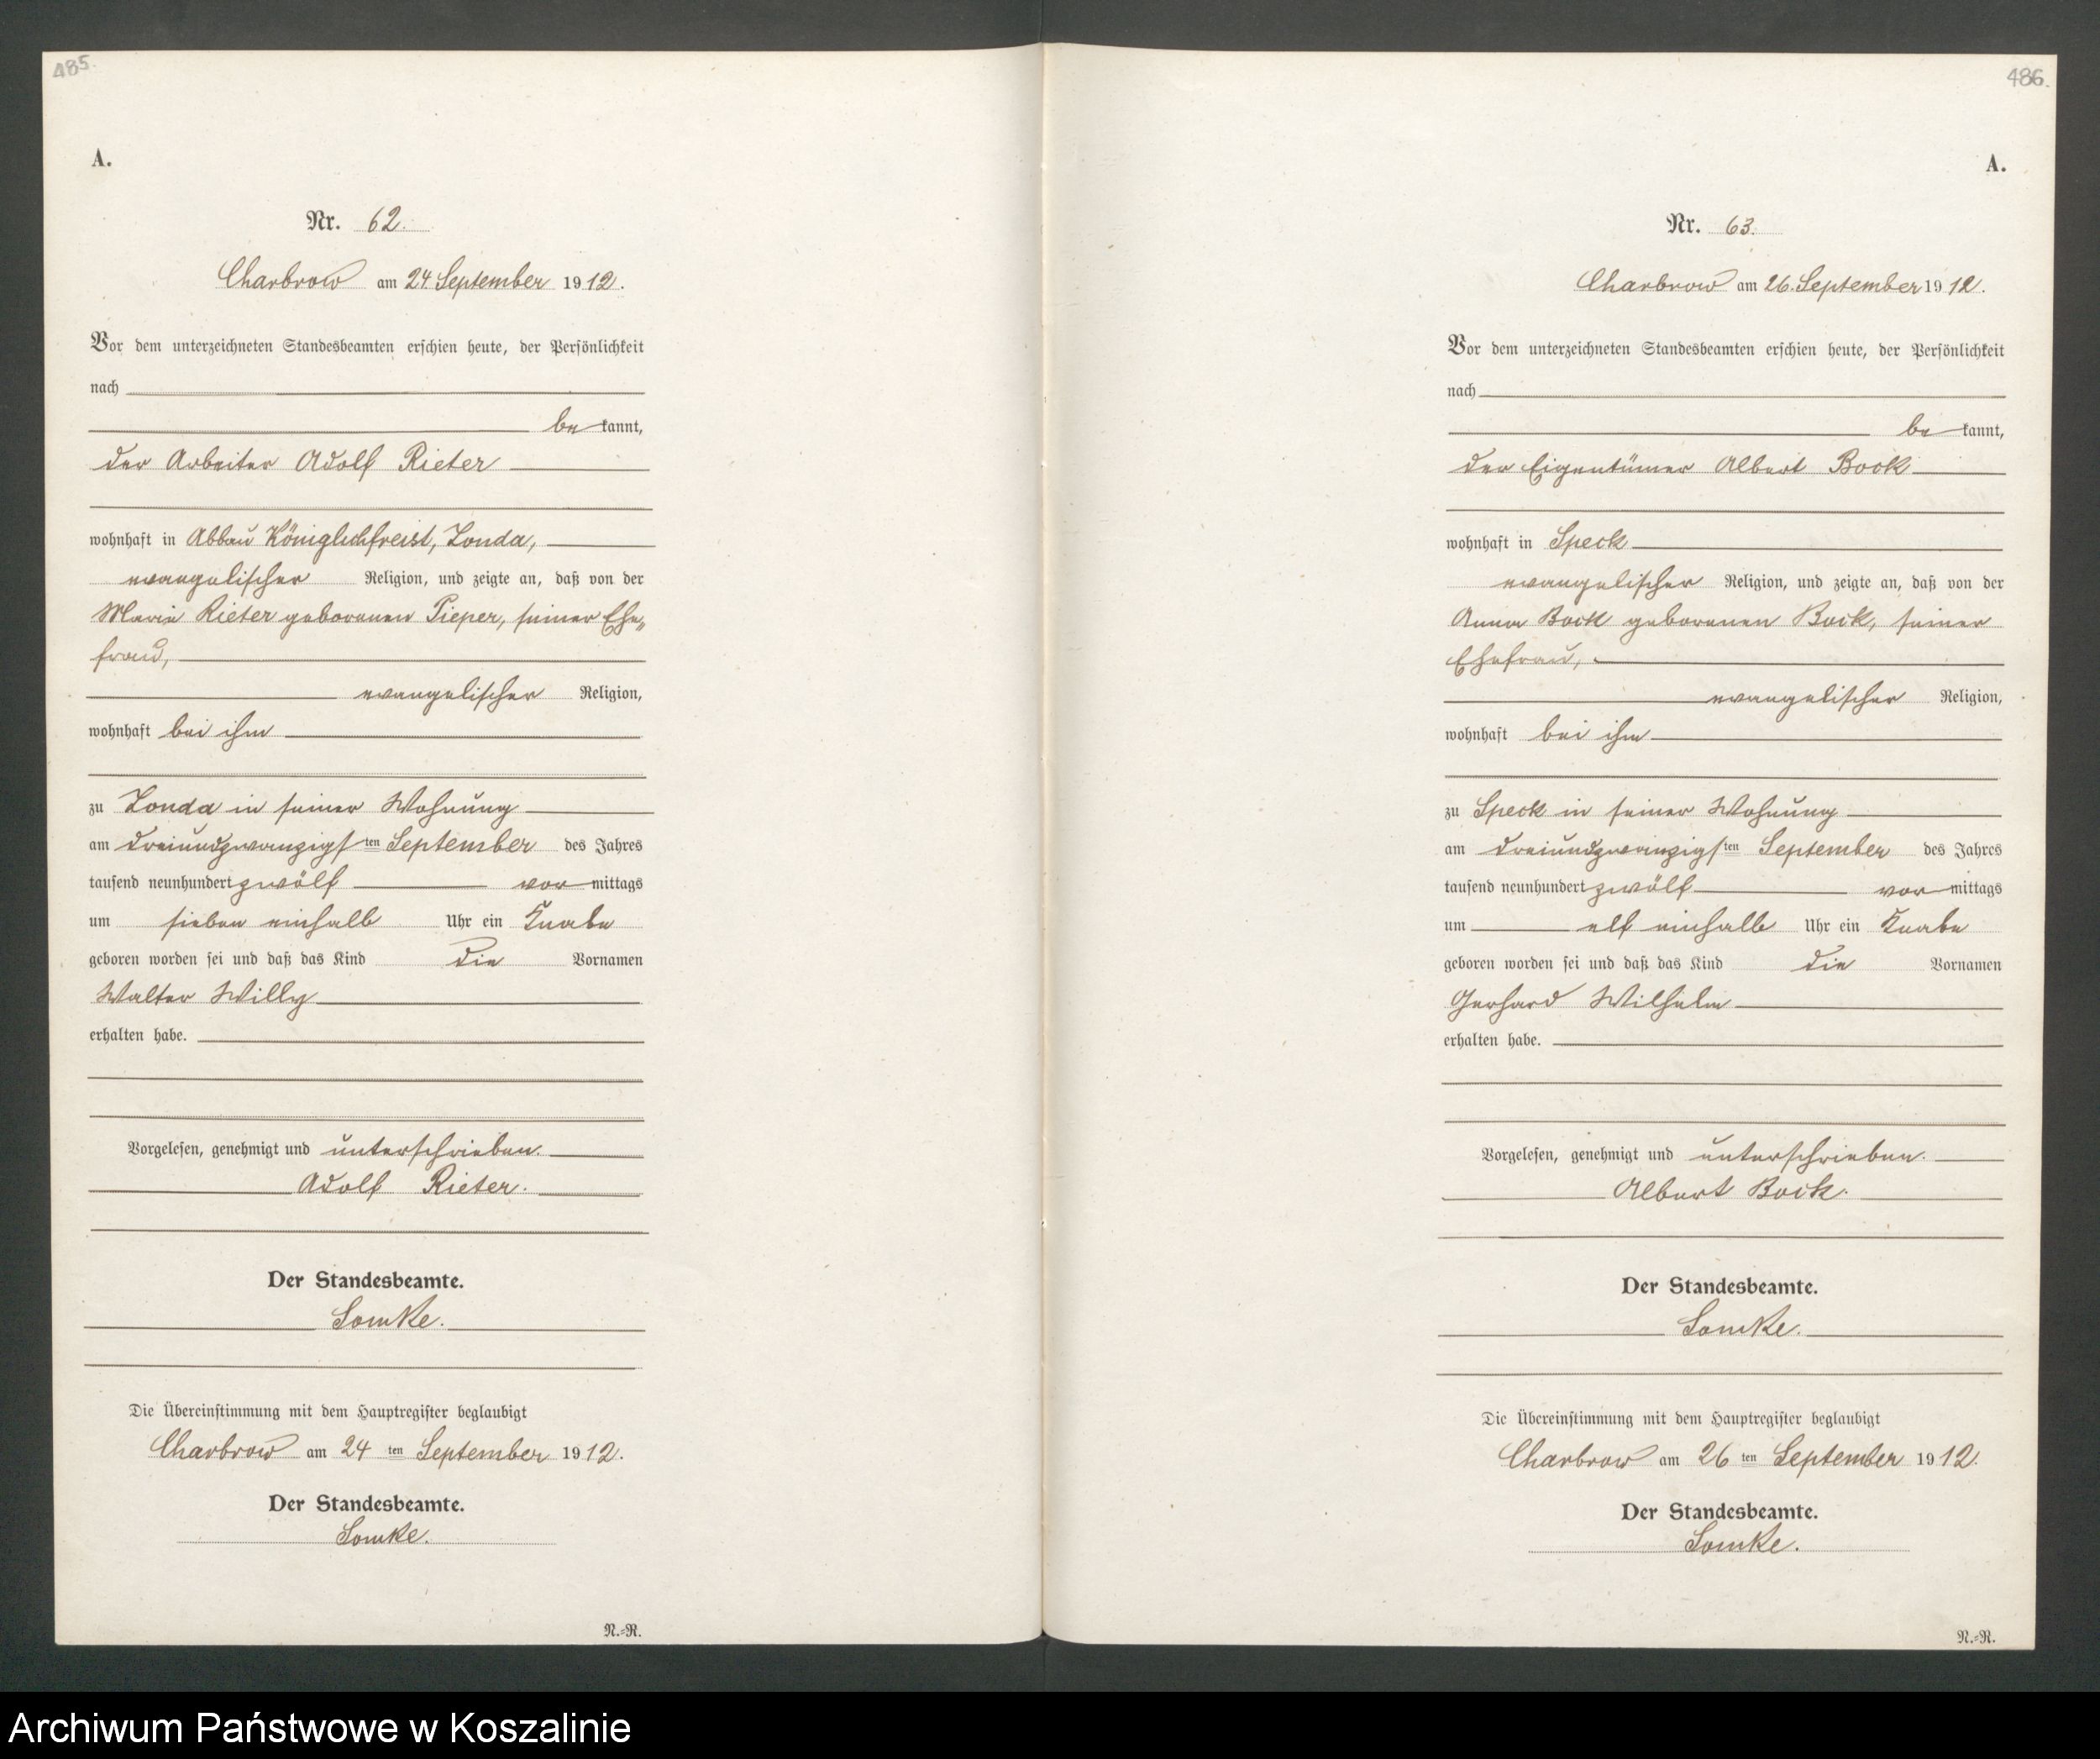 485.
A.
Nr. 62.
Charbrow am 24 September 1912.
Vor dem unterzeichneten Standesbeamten erschien heute, der Persönlichkeit
nach
bekannt,
der Arbeiter Adolf Rieter
wohnhaft in Abbau Königlichfreist, Londa,
evangelischer Religion, und zeigte an, daß von der
Marie Rieter geborenen Pieper, seiner Ehe„
frau,
evangelischer Religion,
wohnhaft bei ihm
zu Londa in seiner Wohnung
am dreiundzwanzigsten September des Jahres
tausend neunhundert zwölf vormittags
um sieben einhalb Uhr ein Knabe
geboren worden sei und daß das Kind die Vornamen
Walter Willy
erhalten habe.
Vorgelesen, genehmigt und unterschrieben.
Adolf Rieter.
Der Standesbeamte.
Somke.
Die Übereinstimmung mit dem Hauptregister beglaubigt
Charbrow am 24 ten September 1912.
Der Standesbeamte.
Somke.
N.=R.
486.
A.
Nr. 63.
Charbrow am 26. September 1912.
Vor dem unterzeichneten Standesbeamten erschien heute, der Persönlichkeit
nach
bekannt,
der Eigentümer Albert Bock
wohnhaft in Speck
evangelischer Religion, und zeigte an, daß von der
Anna Bock geborenen Bock, seiner
Ehefrau,
evangelischer Religion,
wohnhaft bei ihm
zu Speck in seiner Wohnung
am dreiundzwanzigsten September des Jahres
tausend neunhundert zwölf vormittags
um elf einhalb Uhr ein Knabe
geboren worden sei und daß das Kind die Vornamen
Gerhard Wilhelm
erhalten habe.
Vorgelesen, genehmigt und unterschrieben.
Albert Bock.
Der Standesbeamte.
Somke.
Die Übereinstimmung mit dem Hauptregister beglaubigt
Charbrow am 26 ten September 1912.
Der Standesbeamte.
Somke.
N.=R.
Archiwum Państwowe w Koszalinie